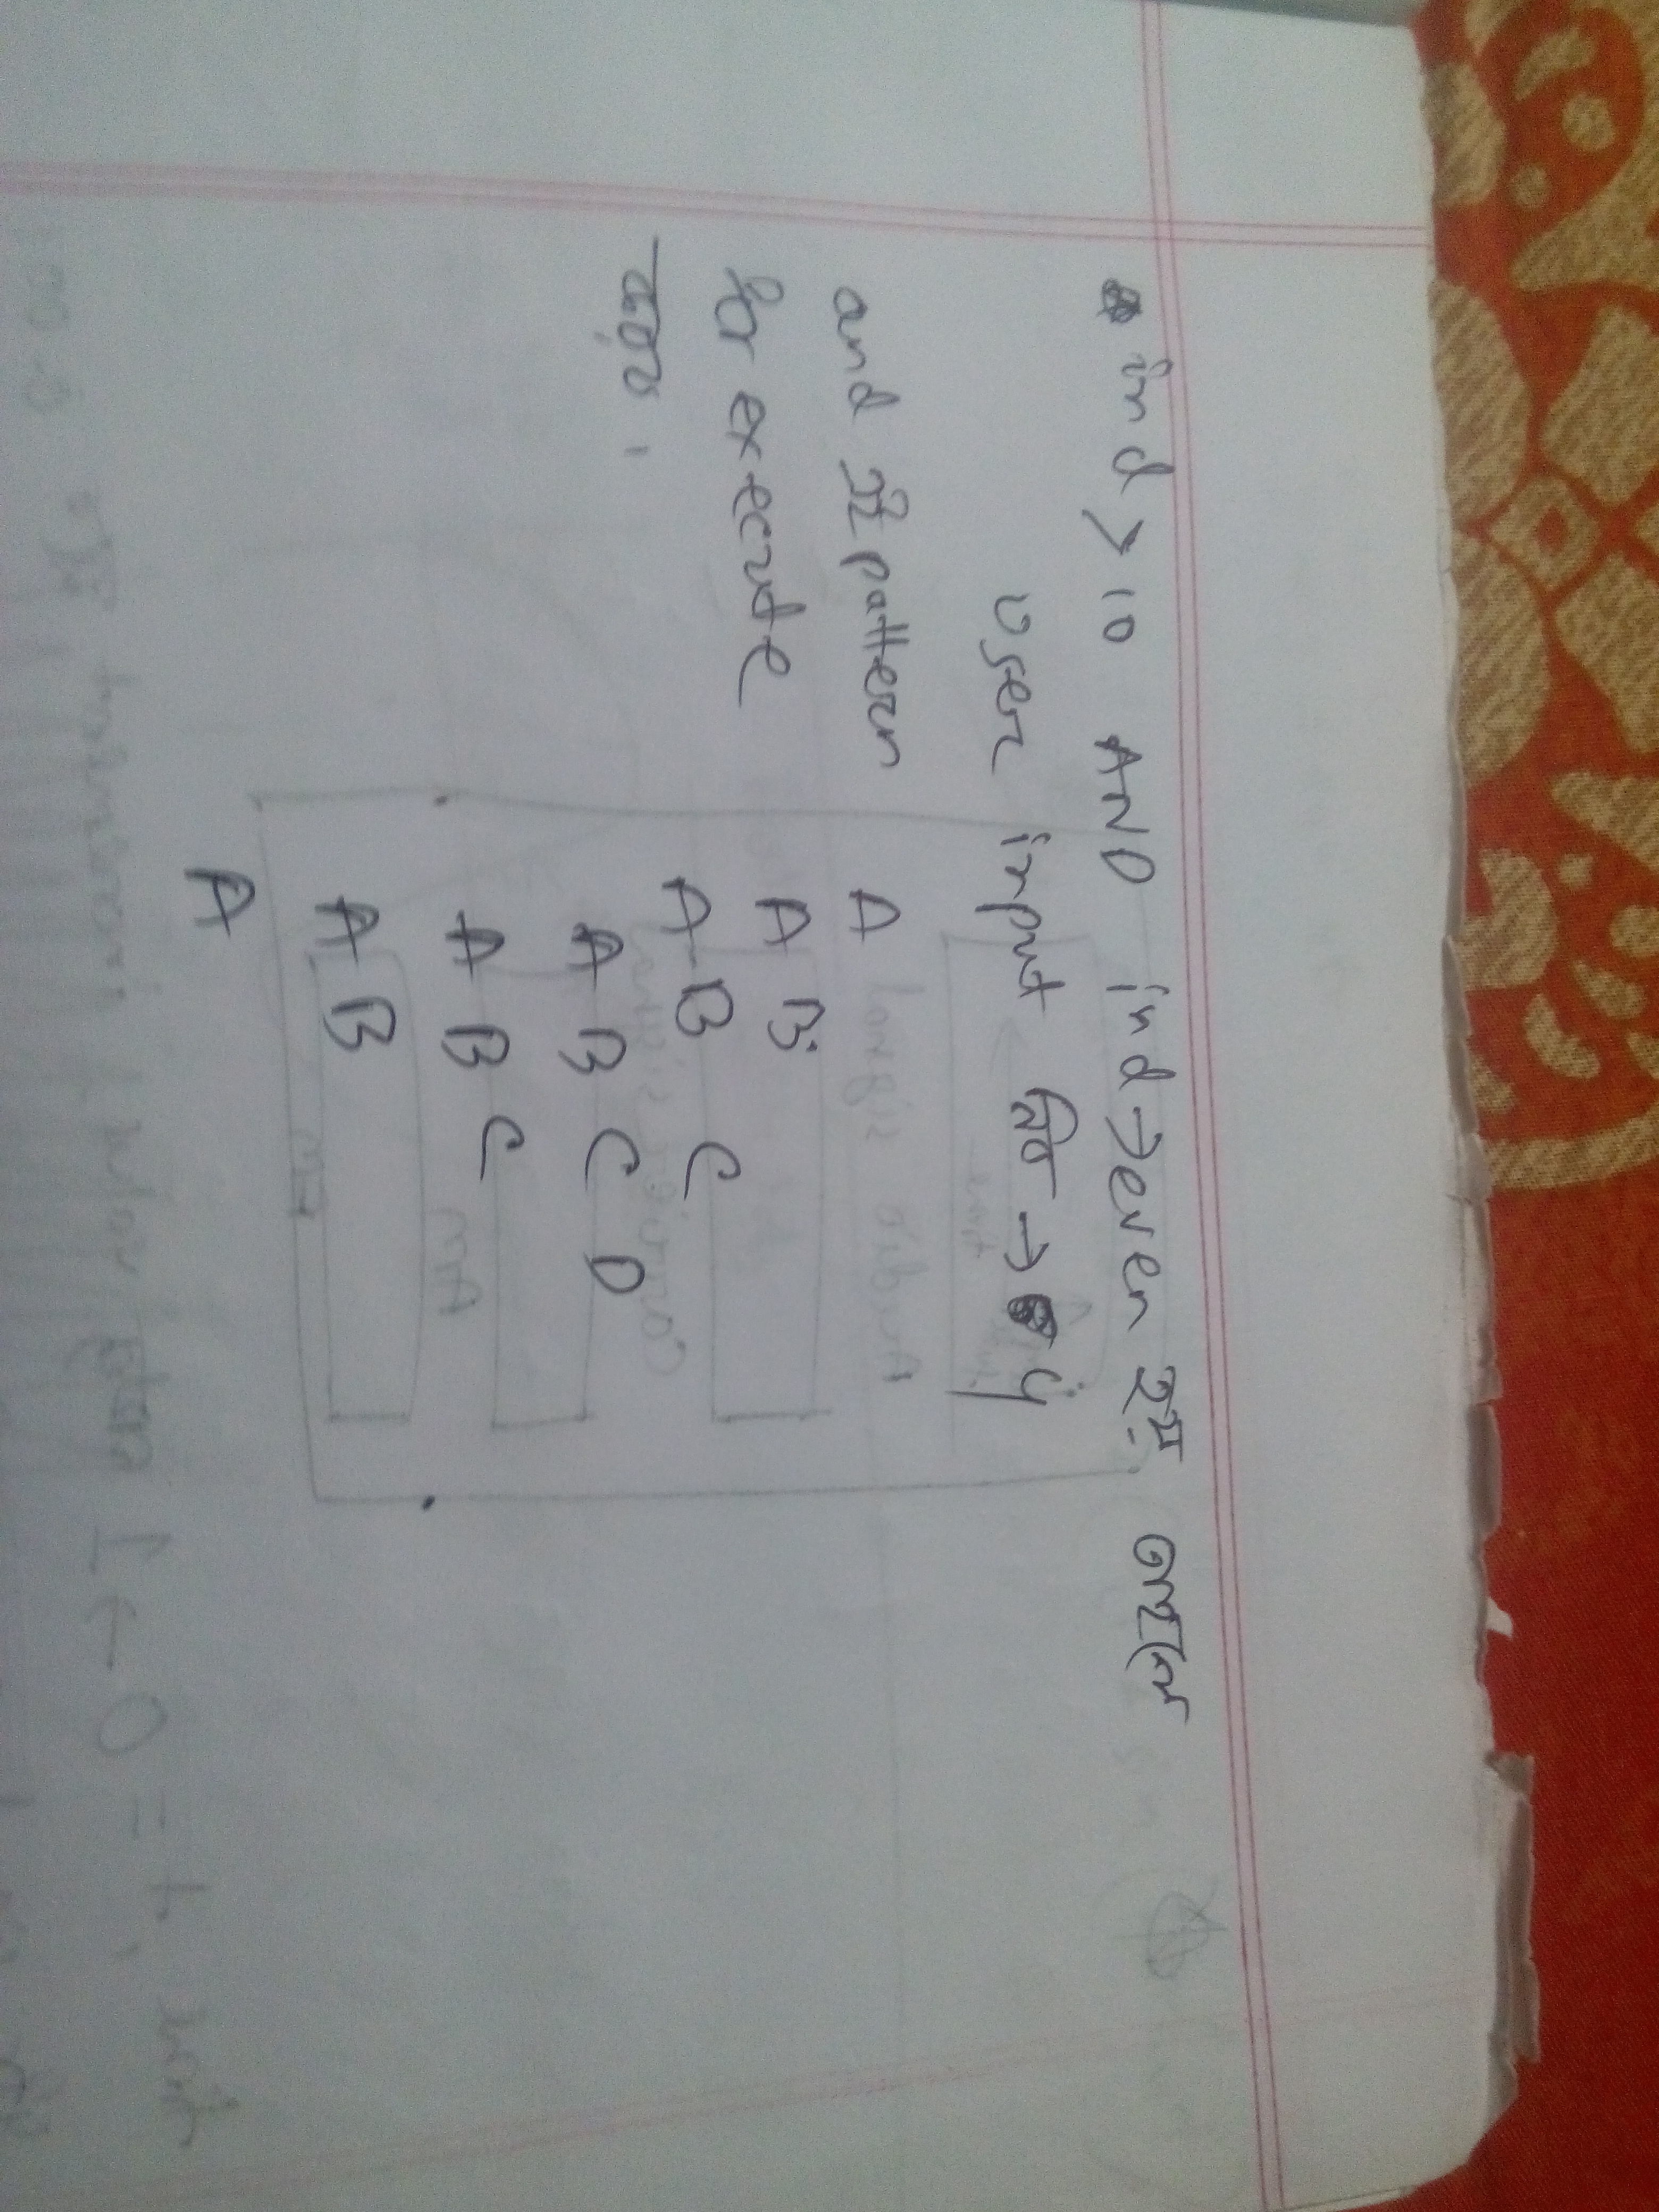 ind > 10 AND ind → even হয় তাহলে
user input নিব → 4
and এই pattern
for execute
করব।
A
A B
A B C
A B C D
A B C
A B
A